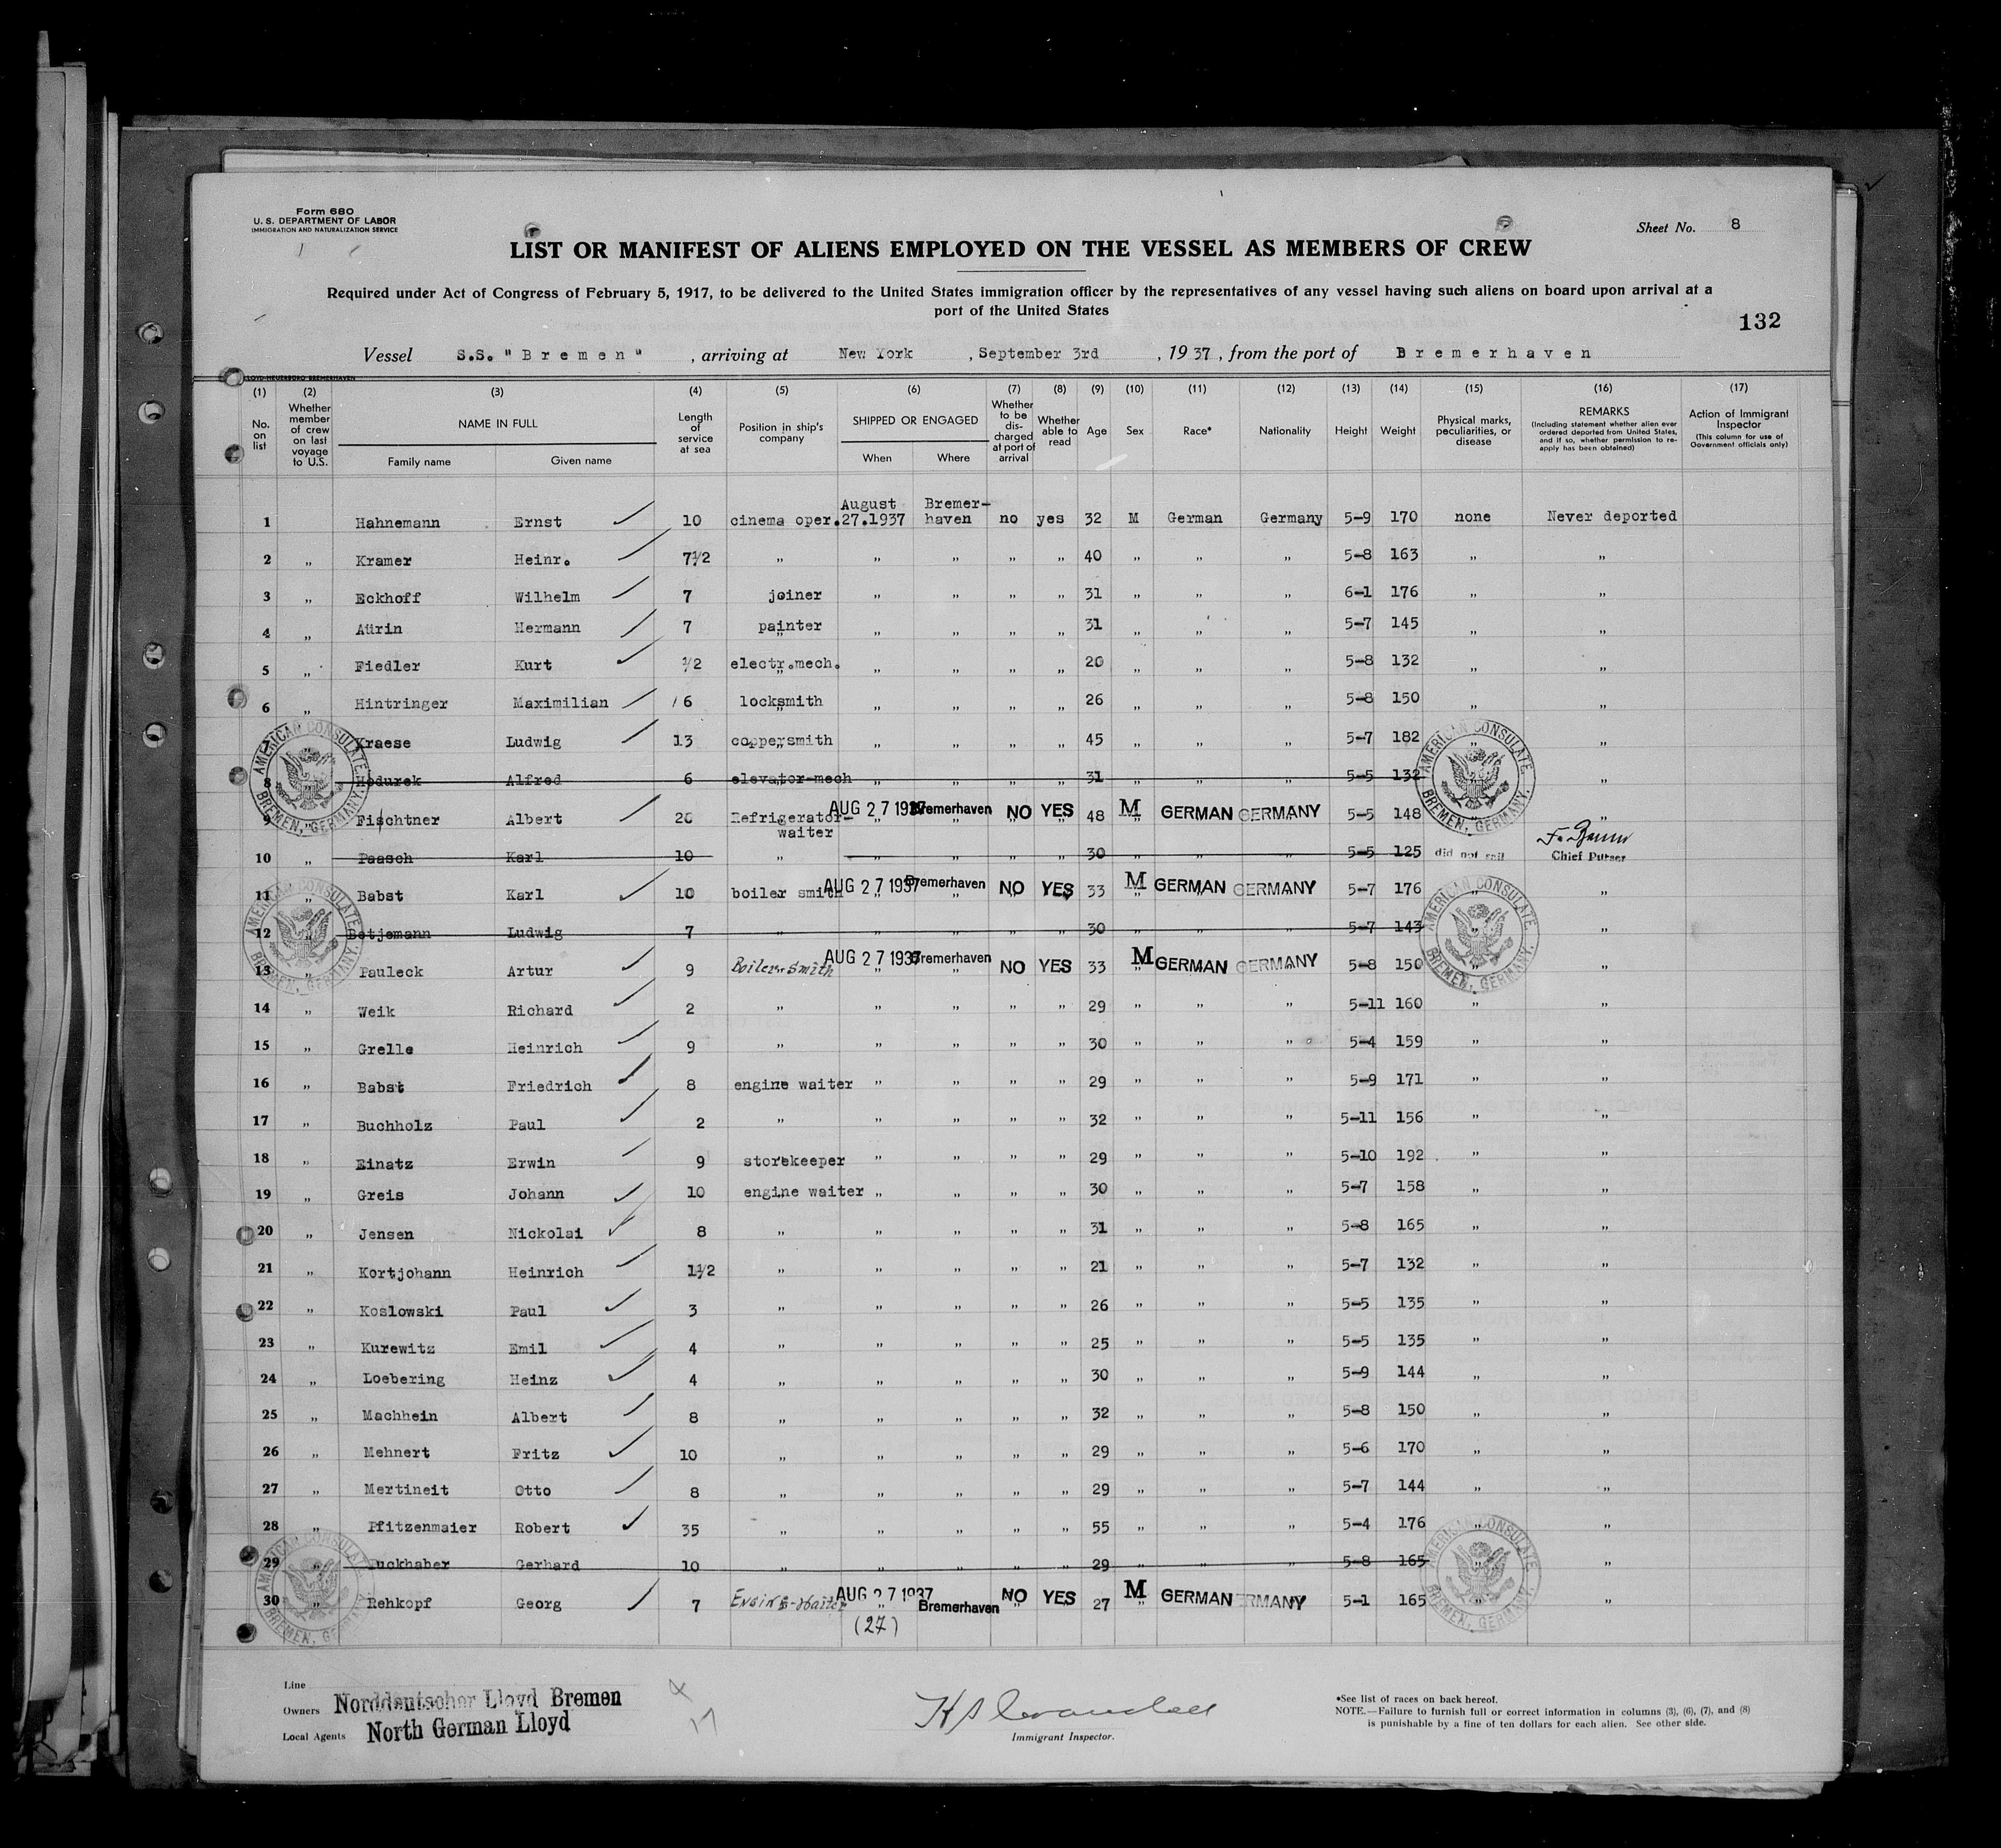 Form 680
U. S. DEPARTMENT OF LABOR
IMMIGRATION AND NATURALIZATION SERVICE
Sheet No. 8
LIST OR MANIFEST OF ALIENS EMPLOYED ON THE VESSEL AS MEMBERS OF CREW
Required under Act of Congress of February 5, 1917, to be delivered to the United States immigration officer by the representatives of any vessel having such aliens on board upon arrival at a
port of the United States
132
Vessel S.S. "Bremen", arriving at New York, September 3rd, 1937, from the port of Bremerhaven
(1) (2) (3) (4) (5) (6) (7) (8) (9) (10) (11) (12) (13) (14) (15) (16) (17)
No. on list
Whether member of crew on last voyage to U.S.
NAME IN FULL
Family name Given name
Length of service at sea
Position in ship's company
SHIPPED OR ENGAGED
When Where
Whether to be discharged at port of arrival
Whether able to read
Age
Sex
Race*
Nationality
Height
Weight
Physical marks, peculiarities, or disease
REMARKS
(Including statement whether alien ever ordered deported from United States, and if so, whether permission to re-apply has been obtained)
Action of Immigrant Inspector
(This column for use of Government officials only)
1 Hahnemann Ernst 10 cinema oper. August 27.1937 Bremer-haven no yes 32 M German Germany 5-9 170 none Never deported
2 " Kramer Heinr. 7½ " " " " " 40 " " " 5-8 163 " "
3 " Eckhoff Wilhelm 7 joiner " " " " 31 " " " 6-1 176 " "
4 " Aürin Hermann 7 painter " " " " 31 " " " 5-7 145 " "
5 " Fiedler Kurt ½ electr.mech. " " " " 20 " " " 5-8 132 " "
6 " Hintringer Maximilian 6 locksmith " " " " 26 " " " 5-8 150 " "
7 Kraese Ludwig 13 coppersmith " " " " 45 " " " 5-7 182 " "
8 Hodurek Alfred 6 elevator-mech " " " " 31 " " " 5-5 132 "
9 " Fischtner Albert 20 Refrigerator-waiter AUG 27 1937 Bremerhaven NO YES 48 M GERMAN GERMANY 5-5 148 "
10 " Paasch Karl 10 " " " " " 30 " " " 5-5 125 did not sail Chief Purser
11 " Babst Karl 10 boiler smith AUG 27 1937 Bremerhaven NO YES 33 M GERMAN GERMANY 5-7 176 " "
12 " Betjemann Ludwig 7 " " " " " 30 " " " 5-7 143 " "
13 " Pauleck Artur 9 Boiler-smith AUG 27 1937 Bremerhaven NO YES 33 M GERMAN GERMANY 5-8 150 " "
14 " Weik Richard 2 " " " " " 29 " " " 5-11 160 " "
15 " Grelle Heinrich 9 " " " " " 30 " " " 5-4 159 " "
16 " Babst Friedrich 8 engine waiter " " " " 29 " " " 5-9 171 " "
17 " Buchholz Paul 2 " " " " " 32 " " " 5-11 156 " "
18 " Einatz Erwin 9 storekeeper " " " " 29 " " " 5-10 192 " "
19 " Greis Johann 10 engine waiter " " " " 30 " " " 5-7 158 " "
20 " Jensen Nickolai 8 " " " " " 31 " " " 5-8 165 " "
21 " Kortjohann Heinrich 1½ " " " " " 21 " " " 5-7 132 " "
22 " Koslowski Paul 3 " " " " " 26 " " " 5-5 135 " "
23 " Kurewitz Emil 4 " " " " " 25 " " " 5-5 135 " "
24 " Loebering Heinz 4 " " " " " 30 " " " 5-9 144 " "
25 " Machhein Albert 8 " " " " " 32 " " " 5-8 150 " "
26 " Mehnert Fritz 10 " " " " " 29 " " " 5-6 170 " "
27 " Mertineit Otto 8 " " " " " 29 " " " 5-7 144 " "
28 " Pfitzenmaier Robert 35 " " " " " 55 " " " 5-4 176 " "
29 " Puckhaber Gerhard 10 " " " " " 29 " " " 5-8 165 " "
30 " Rehkopf Georg 7 Engine-Waiter AUG 27 1937 Bremerhaven NO YES 27 M GERMAN GERMANY 5-1 165 " "
(27)
AMERICAN CONSULATE. BREMEN, GERMANY.
AMERICAN CONSULATE. BREMEN, GERMANY.
AMERICAN CONSULATE. BREMEN, GERMANY.
AMERICAN CONSULATE. BREMEN, GERMANY.
AMERICAN CONSULATE. BREMEN, GERMANY.
AMERICAN CONSULATE. BREMEN, GERMANY.
Line
Owners Norddeutscher Lloyd Bremen
Local Agents North German Lloyd
Immigrant Inspector.
*See list of races on back hereof.
NOTE.—Failure to furnish full or correct information in columns (3), (6), (7), and (8)
is punishable by a fine of ten dollars for each alien. See other side.